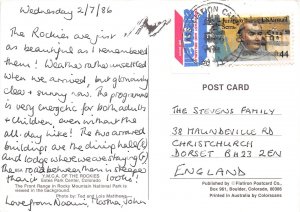 Wednesday 2/7/86
The Rockies are just
as beautiful as I remembered
them! Weather rather unsettled
when we arrived, but gloriously
clear + sunny now. The programme
is very energetic for both adults
+ children, even without the
all day hike! The two arrowed
buildings are the dining hall(E)
and lodge where we are staying(P)
The road between them is steeper
than it looks!
Love from Martha, John
Y.M.C.A. OF THE ROCKIES
Estes Park Center, Colorado
The Front Range in Rocky Mountain National Park is
viewed in the background.
Photo by: Ted and Lois Matthews
USAirmail
44
POST CARD
THE STEVENS FAMILY
38 MAUNDEVILLE RD
CHRISTCHURCH
DORSET BH23 2EN
ENGLAND
Published by © Flatiron Postcard Co.,
Box 961, Boulder, Colorado, 80306
Printed in Australia by Colorscans